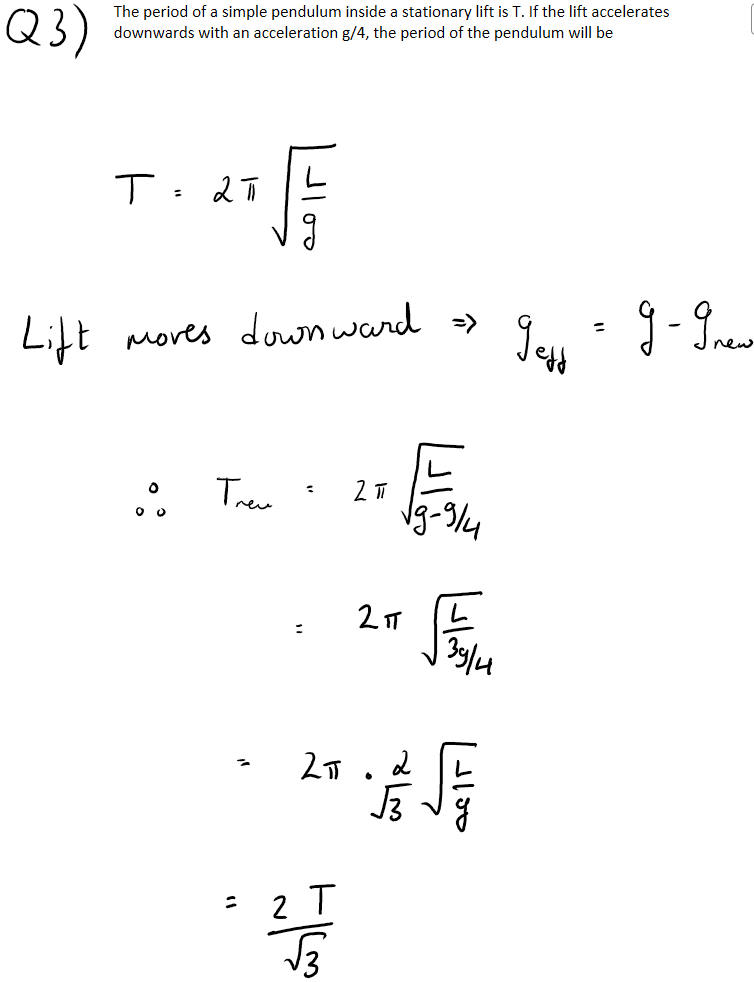 Q3) The period of a simple pendulum inside a stationary lift is T. If the lift accelerates
downwards with an acceleration g/4, the period of the pendulum will be
T = 2π √(L/g)
Lift moves downward ⇒ g_eff = g - g_new
∴ T_new = 2π √(L/(g-g/4))
= 2π √(L/(3g/4))
= 2π · 2/√3 √(L/g)
= 2T/√3